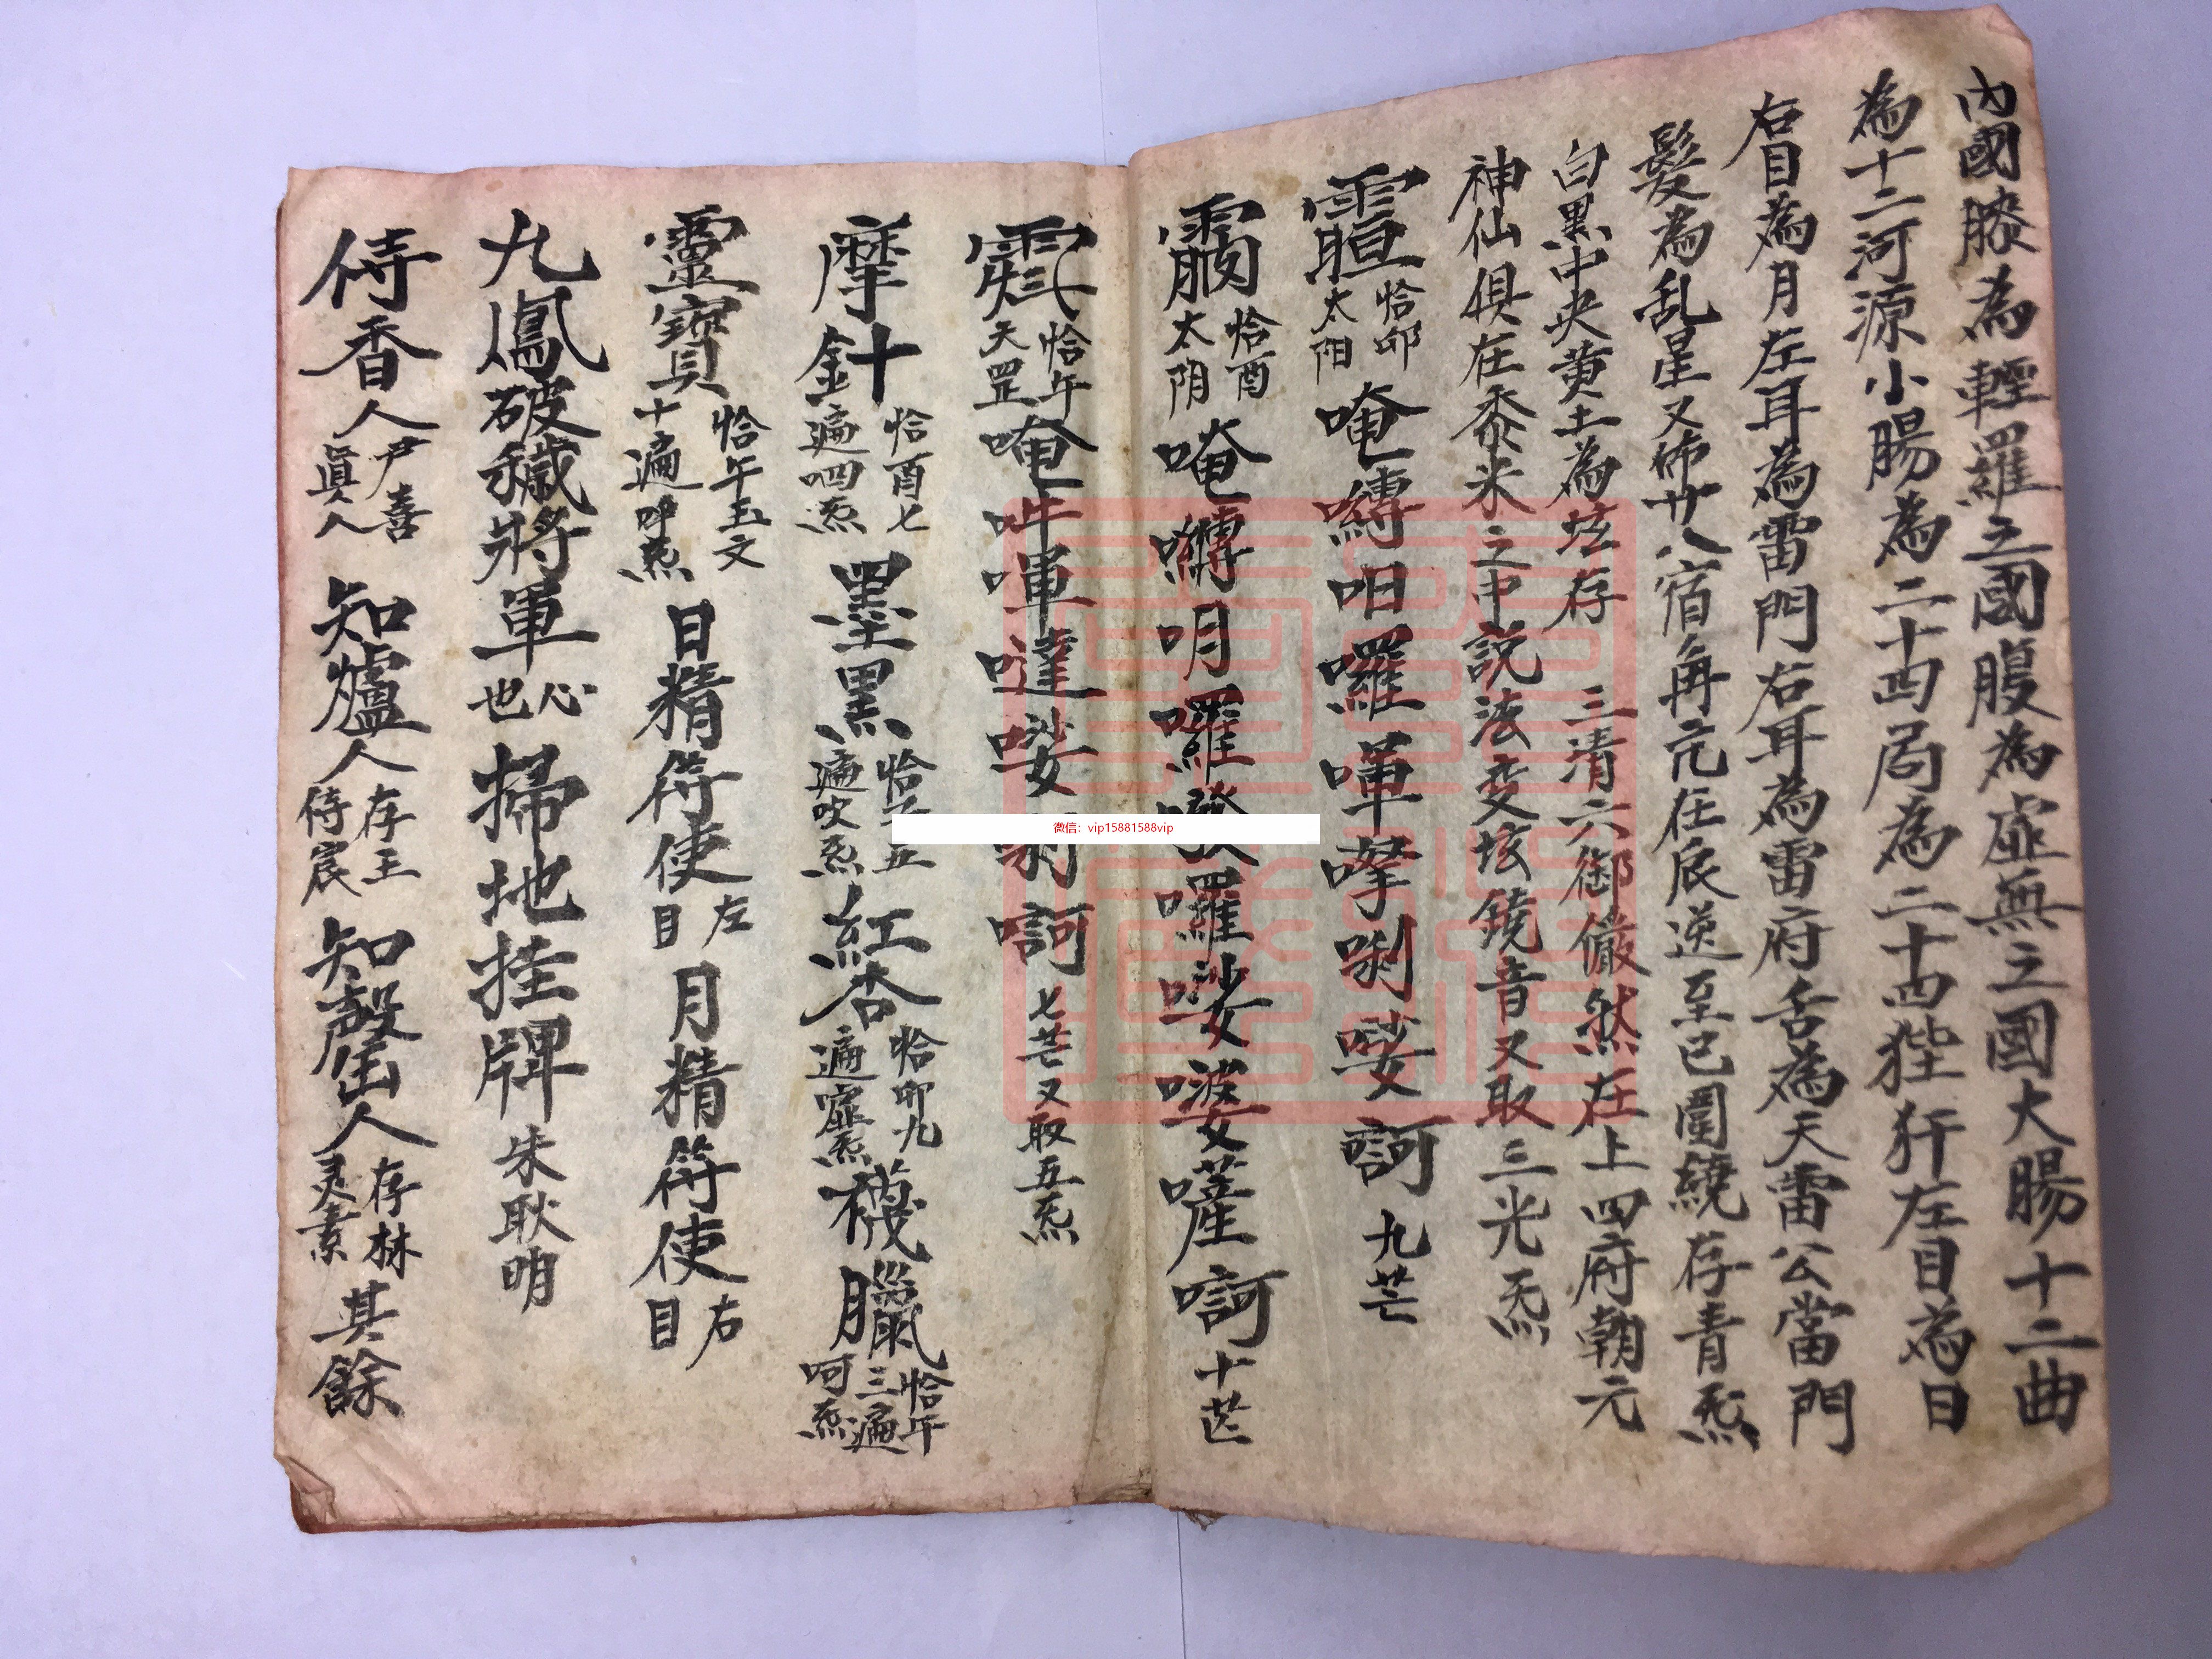 內國膝為輕羅之國腹為虛無之國大腸十二曲
為十二河源小腸為二十四局為二十四狴犴左目為日
右目為月左耳為雷門右耳為雷府舌為天雷公當門
髮為乱星又佈廿八宿角亢在辰送至巳圍繞存青炁
白黑中央黃土為垓存 三清六御儼然在上四府朝元
神仙俱在黍米之中說法变垓鏡音又取三光炁
恰卯太阳唵囀呾囉㗲哪㗚娑訶九芒
恰酉太阴唵㖿囉囉娑婆訶十芒
恰午天罡唵吽㗲噠娑唎訶七芒又取五炁
摩針恰酉七遍呬炁墨黑恰五遍吹炁紅杏恰卯九遍噓炁襪臘恰午三遍呵炁
靈寶恰午玉文十遍呼炁日精符使左目月精符使右目
九鳳破穢將軍心也掃地挂牌朱耿明
侍香人尹喜真人知爐人存王侍宸知磬人存林灵素其餘
微信：vip15881588vip